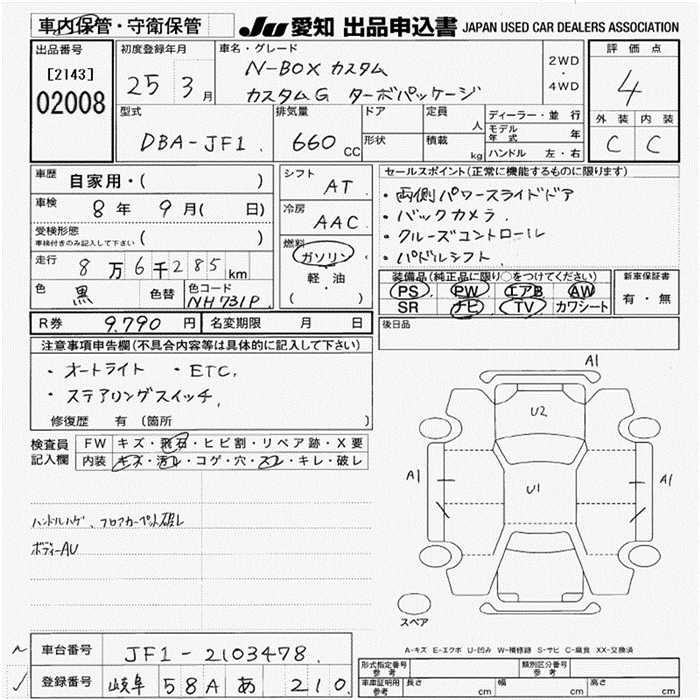 車内保管・守衛保管 JU 愛知 出品申込書 JAPAN USED CAR DEALERS ASSOCIATION
出品番号 初度登録年月 車名・グレード 評価点
[2143] 25 3月 N-BOX カスタム 2WD・4WD 4
02008 カスタムG ターボパッケージ
型式 排気量 ドア 定員 人 ディーラー・並行 外装 内装
DBA-JF1 660 CC 形状 積載 kg モデル年式 年 C C
ハンドル 左・右
車歴 自家用・( ) シフト AT セールスポイント(正常に機能するものに限ります)
車検 8年 9月( 日) 冷房 AAC ・両側パワースライドドア
受検形態 ( ) ・バックカメラ.
車検付きのみ記入して下さい 燃料 ・クルーズコントロール
走行 8万6千285km ガソリン ・パドルシフト.
軽・油
( )
装備品(純正品に限り○をつけてください) 新車保証書
色 黒 色替 色コード NH731P PS PW エアB AW 有・無
SR ナビ TV カワシート
R券 9.790円 名変期限 月 日 後日品
注意事項申告欄(不具合内容等は具体的に記入して下さい)
・オートライト ・ETC.
・ステアリングスイッチ.
修復歴 有(箇所 )
検査員記入欄 FW キズ・飛石・ヒビ割・リペア跡・X要
内装 キズ・汚レ・コゲ・穴・スレ・キレ・破レ
ハンドルハゲ、フロアカーペット破レ
ボディーAU
A1
U2
A1 U1 A1
スペア
A-キズ E-エクボ U-凹み W-補修跡 S-サビ C-腐食 XX-交換済
車台番号 JF1-2103478.
登録番号 岐阜 58A あ 210
形式指定番号 参考 類別区分番号 参考
車庫証明用 参考 長さ cm 幅 cm 高さ cm